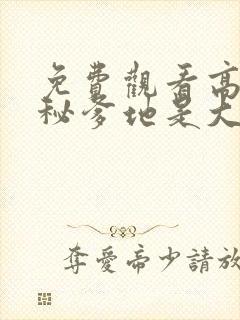 免費觀看高
秘爹地是大
奪愛帝少請放